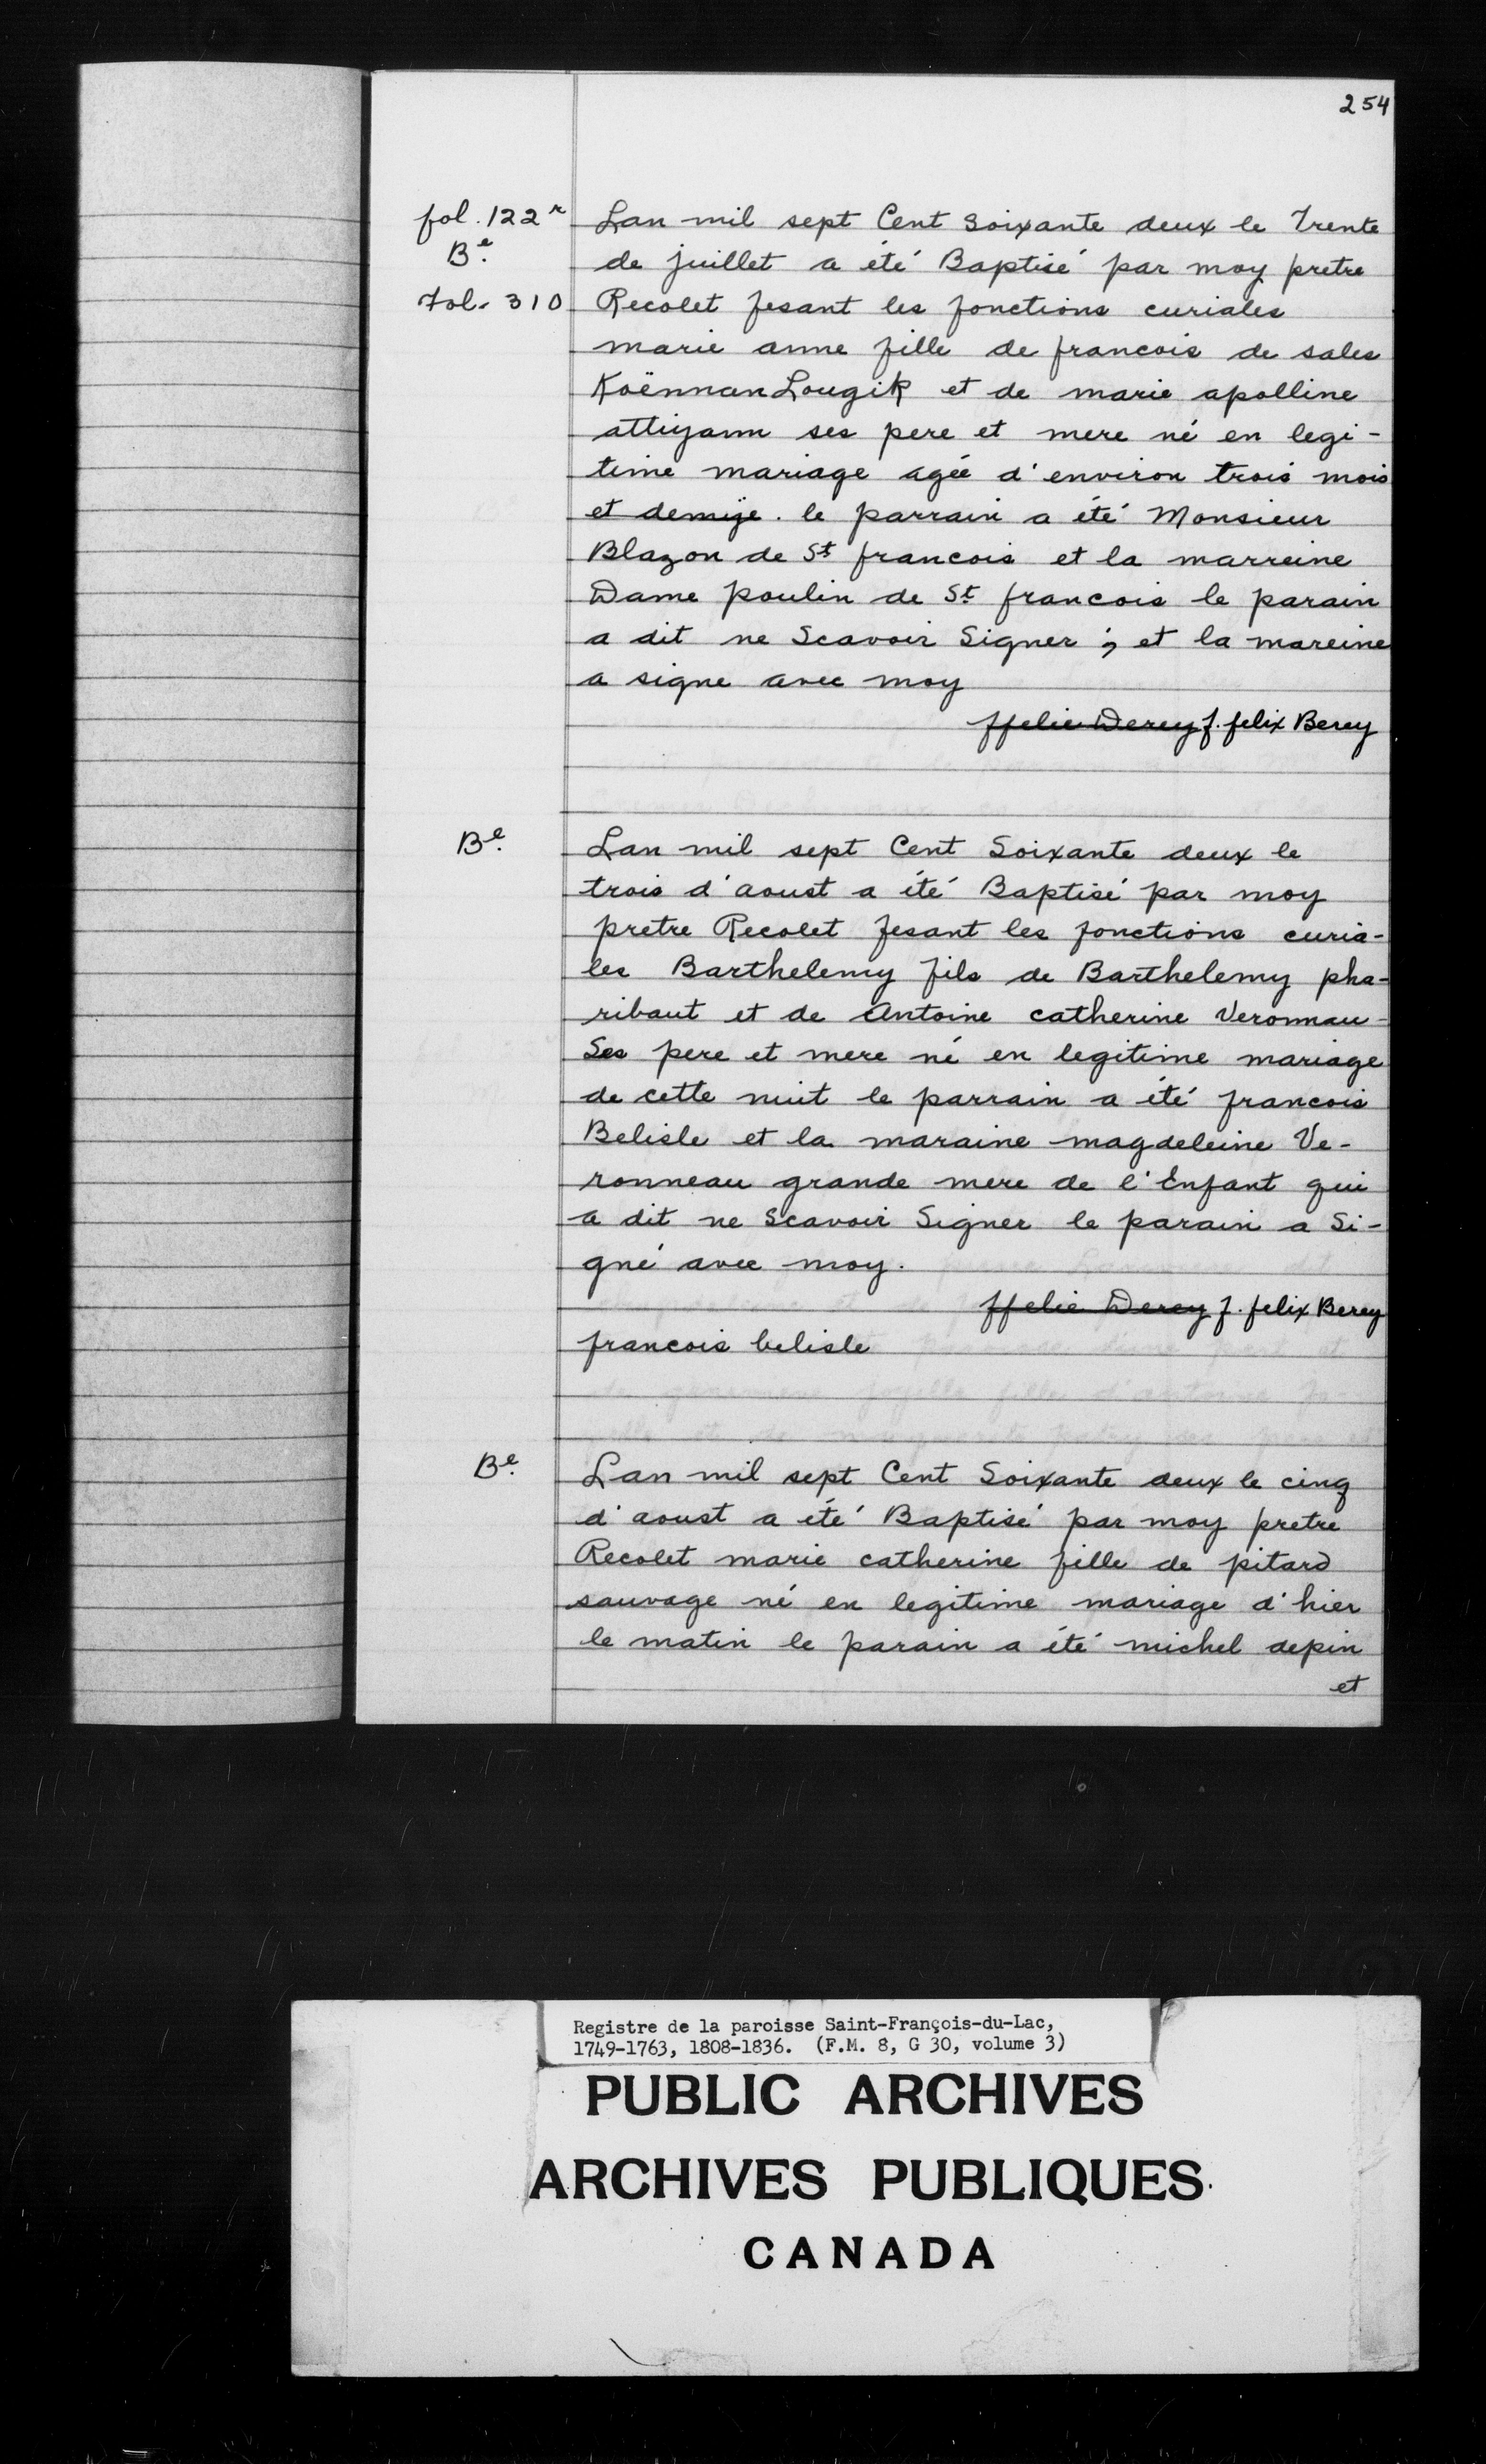 254
fol. 122r Lan mil sept Cent Soixante deux le Trente
Be. de juillet a été Baptisé par moy pretre
Fol. 310 Recolet fesant les fonctions curiales
marie anne fille de francois de sales
KoënnanLougiK et de marie apolline
attiyann ses pere et mere né en legi-
time mariage agée d'environ trois mois
et demije. le parrain a été Monsieur
Blazon de St francois et la marreine
Dame poulin de St francois le parain
a dit ne Scavoir Signer ; et la mareine
a signe avec moy
ffelie Derey f. felix Berey
Be. Lan mil sept Cent Soixante deux le
trois d'aoust a été Baptisé par moy
pretre Recolet fesant les fonctions curia-
les Barthelemy fils de Barthelemy pha-
ribaut et de Antoine catherine Veronnau
Ses pere et mere né en legitime mariage
de cette nuit le parrain a été francois
Belisle et la maraine magdeleine Ve-
ronneau grande mere de l'Enfant qui
a dit ne Scavoir Signer le parain a Si-
gné avec moy.
ffelie Derey f. felix Berey
francois belisle
Be. Lan mil sept Cent Soixante deux le cinq
d'aoust a été Baptisé par moy pretre
Recolet marie catherine fille de pitard
sauvage né en legitime mariage d'hier
le matin le parain a été michel depin
et
Registre de la paroisse Saint-François-du-Lac,
1749-1763, 1808-1836. (F.M. 8, G 30, volume 3)
PUBLIC ARCHIVES
ARCHIVES PUBLIQUES
CANADA